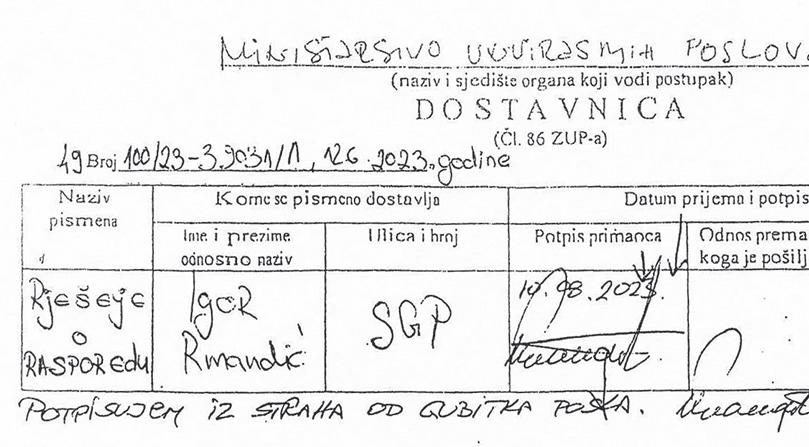 MINISTARSTVO UNUTRAŠNJIH POSLOVA
(naziv i sjedište organa koji vodi postupak)
DOSTAVNICA
(Čl. 86 ZUP-a)
49 Broj 100/23-3.9031/1, 12.6.2023. godine
Naziv pismena
Kome se pismeno dostavlja
Datum prijema i potpis
Ime i prezime odnosno naziv
Ulica i broj
Potpis primaoca
Odnos prema
koga je pošilj
Rješenje o RASPOREDU
Igor Rmandić
SGP
10.08.2023.
POTPISUJEM IZ STRAHA OD GUBITKA POSLA.